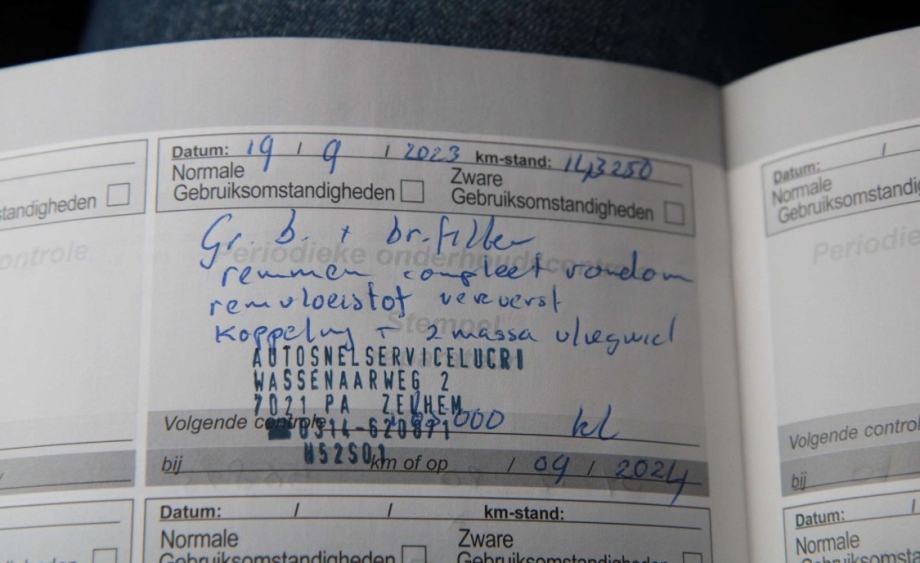 Datum: 19 / 9 / 2023 km-stand: 143250
Datum: /
Normale Gebruiksomstandigheden
Zware Gebruiksomstandigheden
Normale
Gebruiksomstandig
standigheden
Gr. b. + br.filter
Periodieke onderhoudscontrole
ontrole
Periodie
remmen compleet rondom
remvloeistof ververst
Stempel
koppeling + 2 massa vliegwiel
AUTOSNELSERVICELUCRI
WASSENAARWEG 2
7021 PA ZELHEM
0314-620871
N52501
Volgende controle 000 kl
bij km of op / 09 / 2024
Volgende control
bij
Datum: / / km-stand:
Normale
Gebruiksomstandigheden
Zware
Gebruiksomstandigheden
Datum: /
Normale
Gebruiksomsta